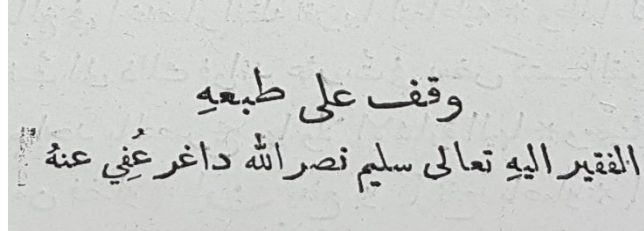 وقف على طبعهِ
الفقير اليهِ تعالى سليم نصر الله داغر عُفِي عنهُ